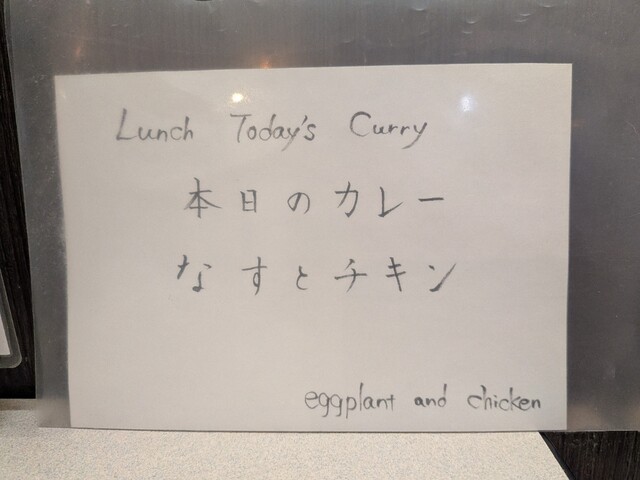 Lunch Today's Curry
本日のカレー
なすとチキン
eggplant and chicken